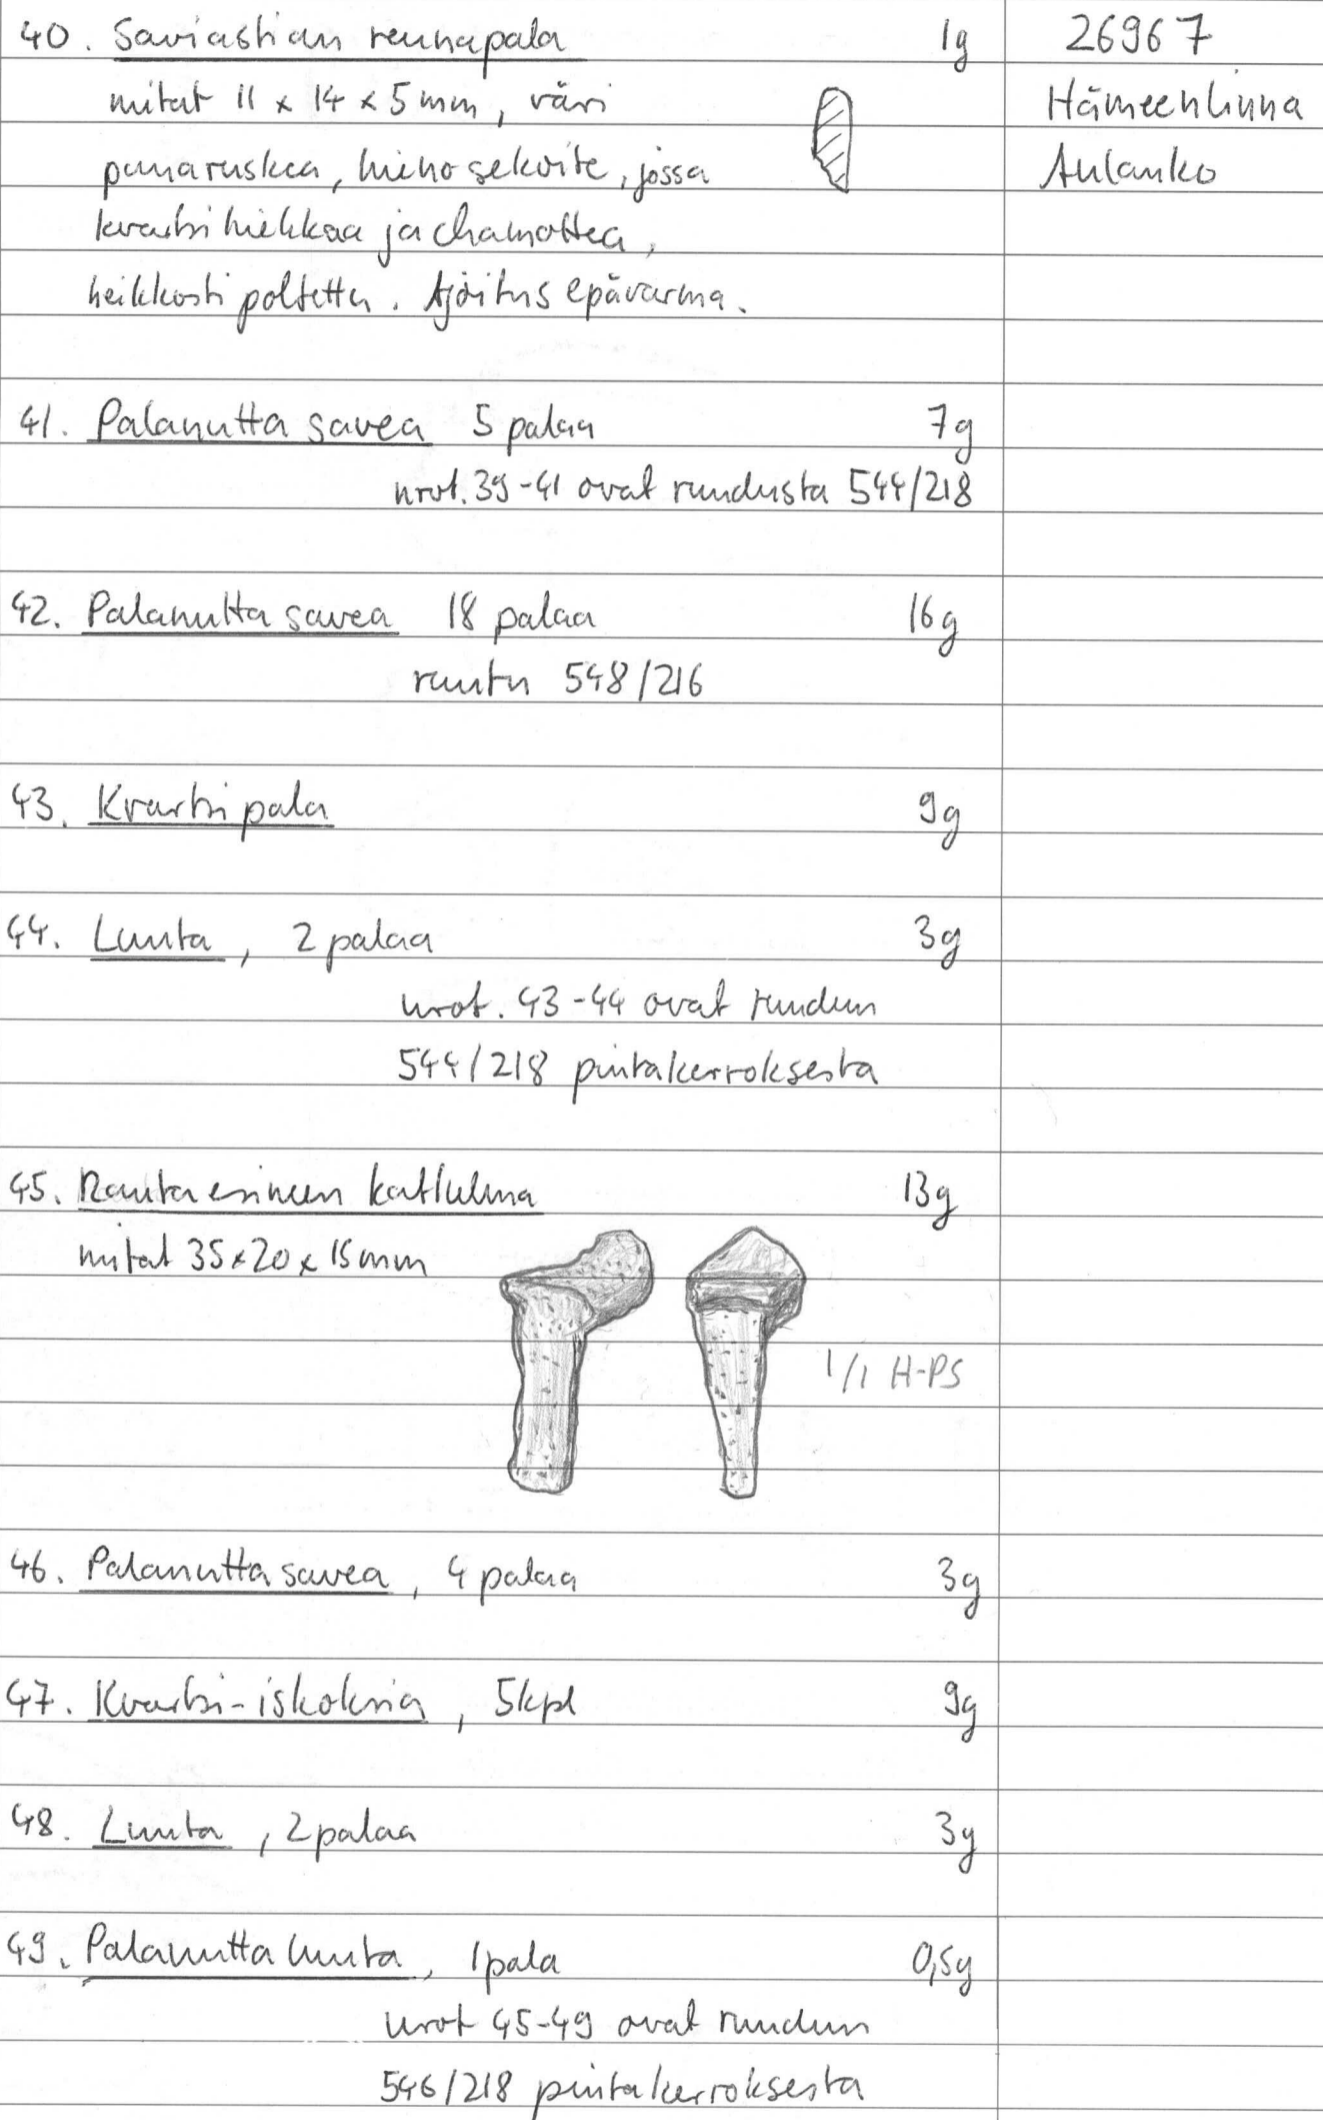 40. Saviastian reunapala 1g
mitat 11 x 14 x 5 mm, väri
punaruskea, hieno sekoite, jossa
kvartsihiekkaa ja chamottea,
heikkosti poltettu. Ajoitus epävarma.
26967
Hämeenlinna
Aulanko
41. Palanutta savea 5 palaa 7g
nrot. 39-41 ovat ruudusta 544/218
42. Palanutta savea 18 palaa 16g
ruutu 548/216
43. Kvartsipala 9g
44. Luuta, 2 palaa 3g
nrot. 43-44 ovat ruudun
544/218 pintakerroksesta
45. Rautaesineen katkelma 13g
mitat 35x20x15mm
1/1 H-PS
46. Palanutta savea, 4 palaa 3g
47. Kvartsi-iskoksia, 5kpl 9g
48. Luuta, 2 palaa 3g
49. Palanutta luuta, 1 pala 0,5g
nrot 45-49 ovat ruudun
546/218 pintakerroksesta